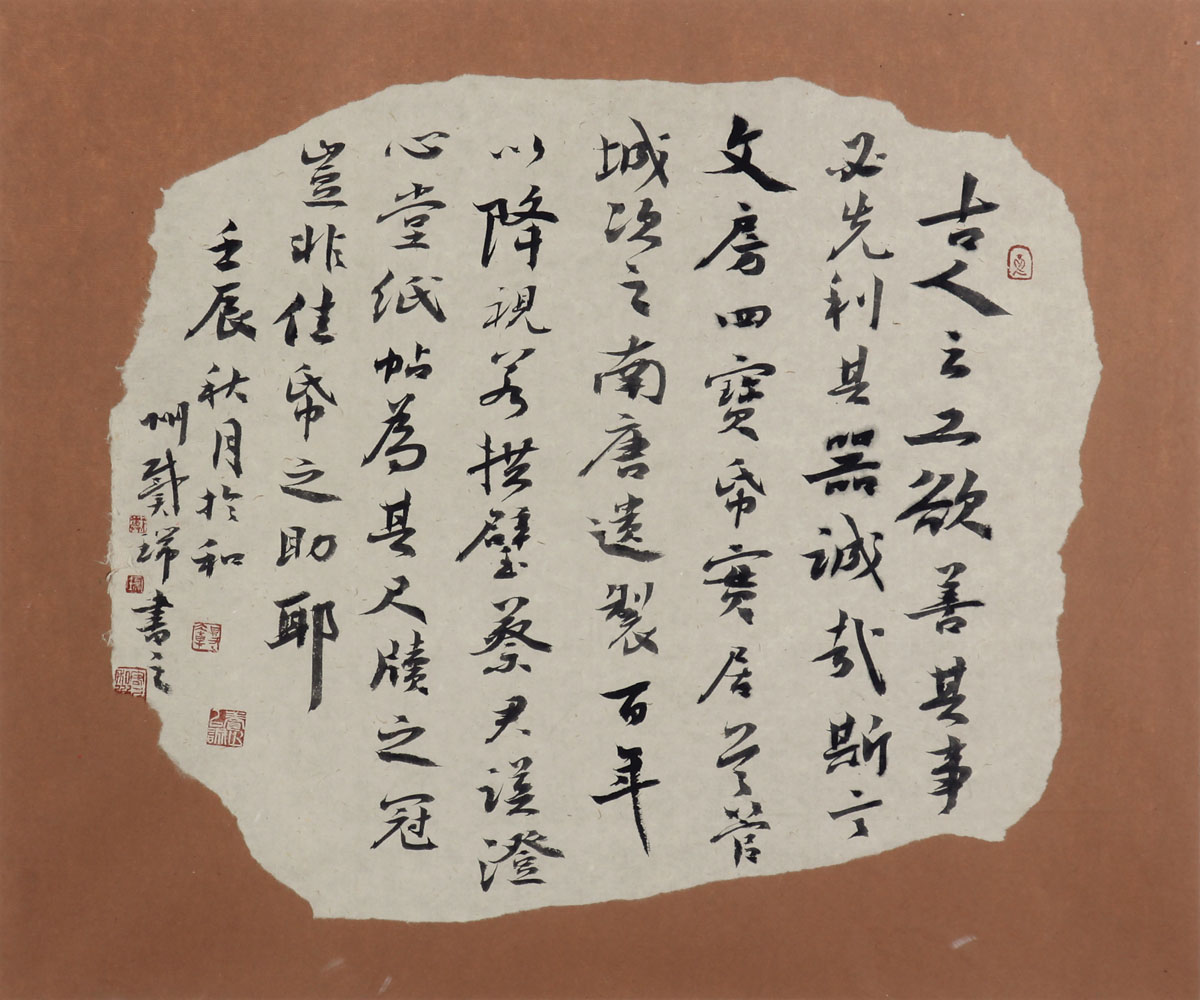 古人云工欲善其事
必先利其器誠哉斯言
文房四寶帋實居首管
城次之南唐遺製百年
以降視若拱璧蔡君謨澄
心堂紙帖為其尺牘之冠
豈非佳帋之助耶
壬辰秋月於和
州戴瑞書之